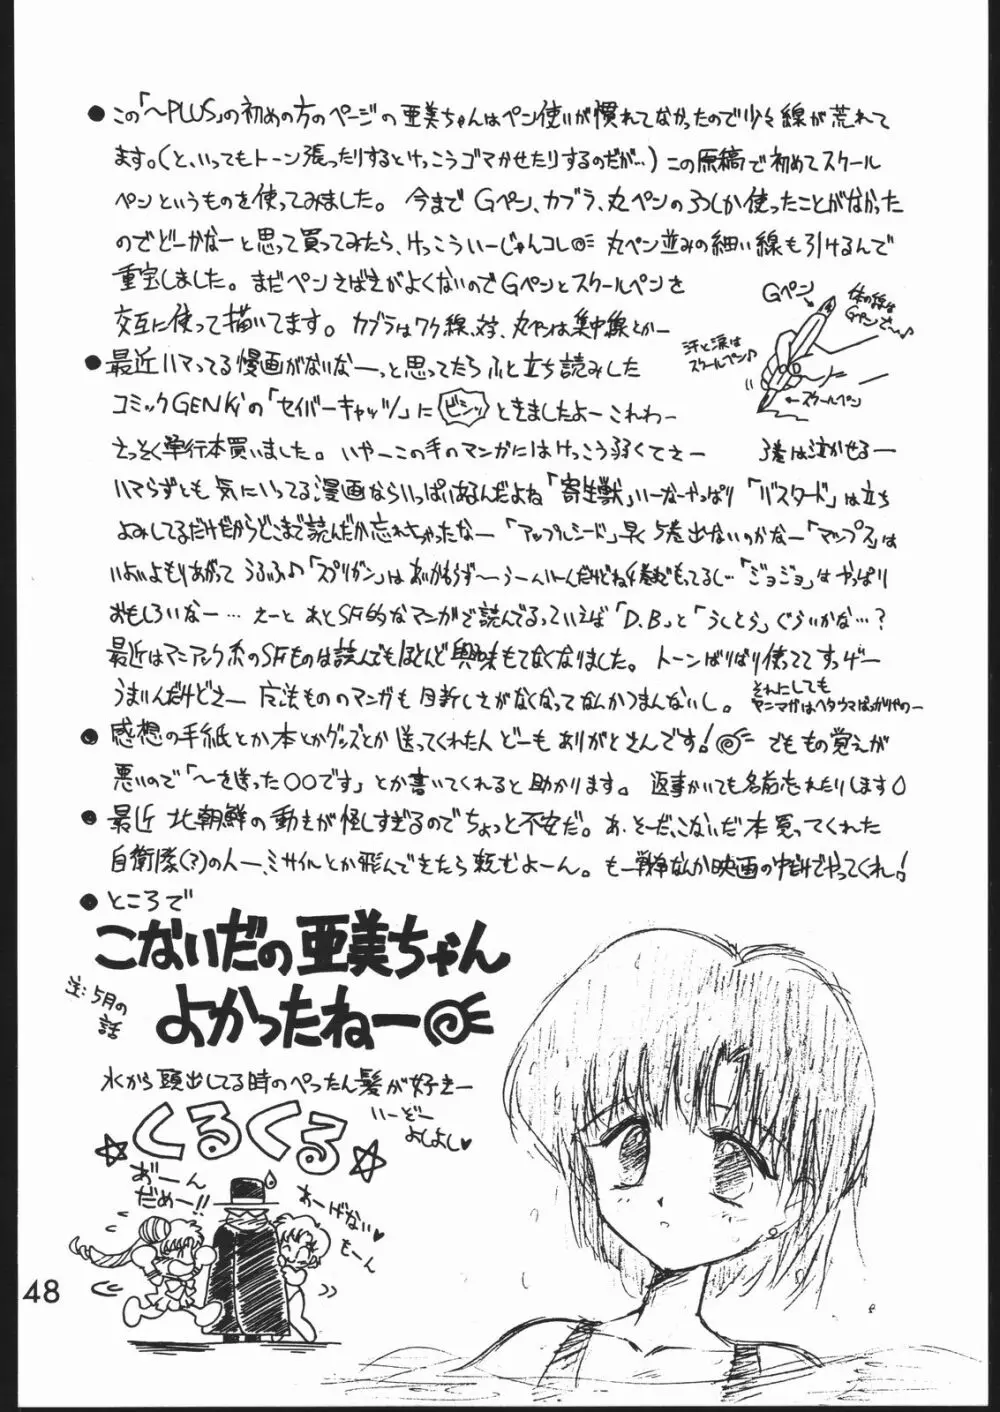 ●この「～PLUS」の初めの方のページの亜美ちゃんはペン使いが慣れてなかったので少々線が荒れて
ます。(と、いってもトーン張ったりするとけっこうゴマかせたりするのだが…)この原稿で初めてスクール
ペンというものを使ってみました。今までGペン、カブラ、丸ペンの3つしか使ったことがなかった
のでどーかなーと思って買ってみたら、けっこういーじゃんコレ 丸ペン並みの細い線も引けるんで
重宝しました。まだペンさばきがよくないのでGペンとスクールペンを
交互に使って描いてます。カブラはワク線、丸ペンは集中線とかー
Gペン
体の線はGペンで〜♪
汗と涙は
スクールペン♪
←スクールペン
●最近ハマってる漫画がないなーっと思ってたらふと立ち読みした
コミックGENKiの「セイバーキャッツ」に ビシッ ときましたよー これわー
さっそく単行本買いました。いやーこの手のマンガにはけっこう弱くてさー 3巻は泣かせるー
ハマらずとも気にいってる漫画ならいっぱいあるんだよね「寄生獣」いーなーやっぱり「バスタード」は立ち
よみしてるだけだからどこまで読んだか忘れちゃったなー「アップルシード」早く5巻出ないのかなー「マップス」は
いよいよもりあがって うふふ♪「スプリガン」はあいかわらず〜うーんいーんだけどね 「ジョジョ」はやっぱり
おもしろいなー… えーと あとSF的なマンガで読んでるっていえば「D.B」と「うしとら」ぐらいかな…?
最近はマニアック系のSFものは読んでもほとんど興味もてなくなりました。トーンばりばり使っててすっげー
うまいんだけどさー 魔法もののマンガも目新しさがなくなってなんかつまんないし。
それにしても
ヤンマガはヘタウマばっかりやのー
●感想の手紙とか本とかグッズとか送ってくれた人どーもありがとさんです! でももの覚えが
悪いので「～を送った○○です」とか書いてくれると助かります。返事かいても名前忘れたりします
●最近 北朝鮮の動きが怪しすぎるのでちょっと不安だ。あ、そーだ、こないだ本買ってくれた
自衛隊(?)の人ー、ミサイルとか飛んできたら頼むよーん。もー戦争なんか映画の中だけでやってくれ!
●ところで
こないだの亜美ちゃん
よかったねー
注:5月の
話
水から頭出してる時のぺったん髪が好きー
いーぞー
よしよし♥
☆くるくる☆
あーん
だめー!!
あーげない♥
もーん
48